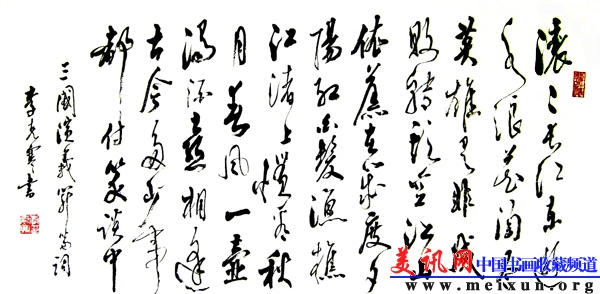 滚〻长江东逝
水浪花淘尽
英雄是非成
败转头空
依旧在几度夕
阳红白发渔樵
江渚上惯看秋
月春风一壶
浊酒喜相逢
古今多少事
都付笑谈中
三國演義词
李克寒书
美讯网 中国书画收藏频道
www.meixun.org